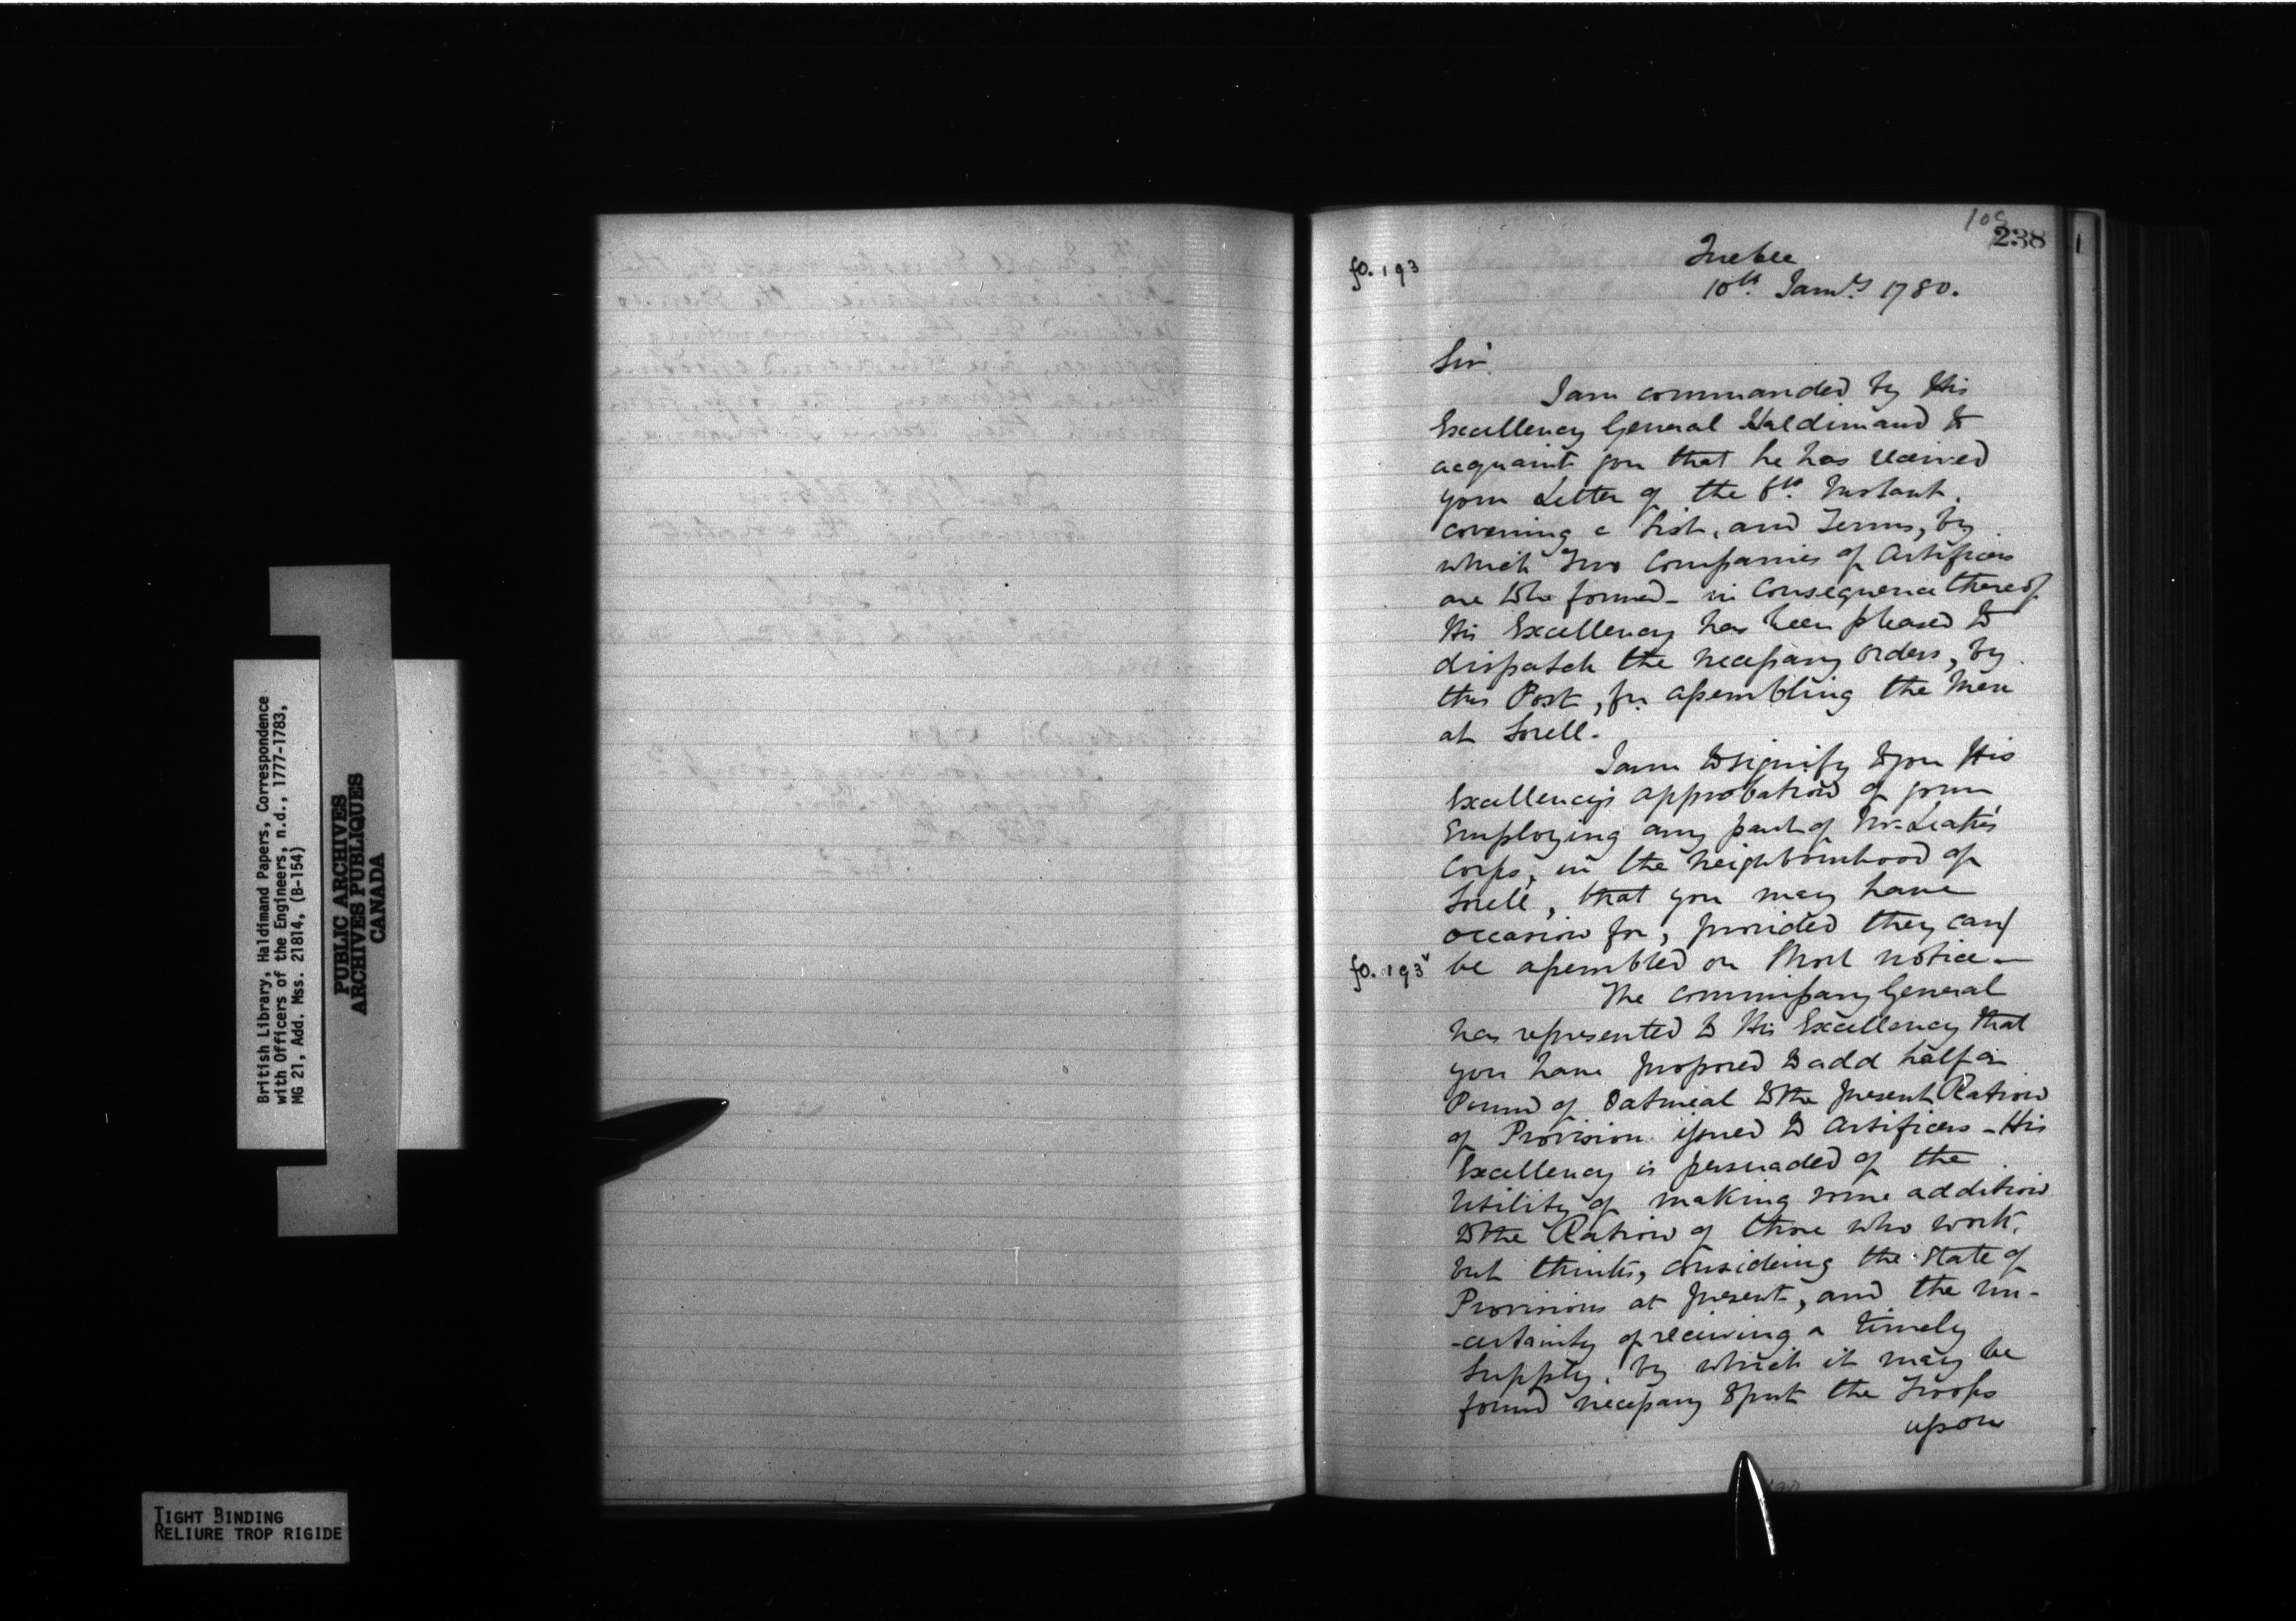 British Library, Haldimand Papers, Correspondence
with Officers of the Engineers, n.d., 1777-1783,
MG 21, Add. Mss. 21814, (B-154)
PUBLIC ARCHIVES
ARCHIVES PUBLIQUES
CANADA
TIGHT BINDING
RELIURE TROP RIGIDE
238
fo. 193
Quebec
10th Jany 1780.
Sir
I am commanded by His
Excellency General Haldimand to
acquaint you that he has received
your Letter of the 6th Instant.
covering a List, and Terms, by
which Two Companies of Artificers
are to be formed - in Consequence thereof
His Excellency has been pleased to
dispatch the necessary orders, by
this Post, for assembling the Men
at Sorell.
I am to signify to you His
Excellency's approbation of your
Employing any part of Mr. Leake's
Corps, in the neighbourhood of
Sorell, that you may have
occasion for, provided they can
fo. 193v be assembled on Short notice -
The Commissary General
has represented to His Excellency that
you have proposed to add half a
Pound of Oatmeal to the present Ration
of Provision issued to Artificers - His
Excellency is persuaded of the
Utility of making some addition
to the Ration of those who work,
but thinks, considering the state of
Provisions at present, and the un-
-certainty of receiving a timely
Supply, by which it may be
found necessary to put the Troops
upon